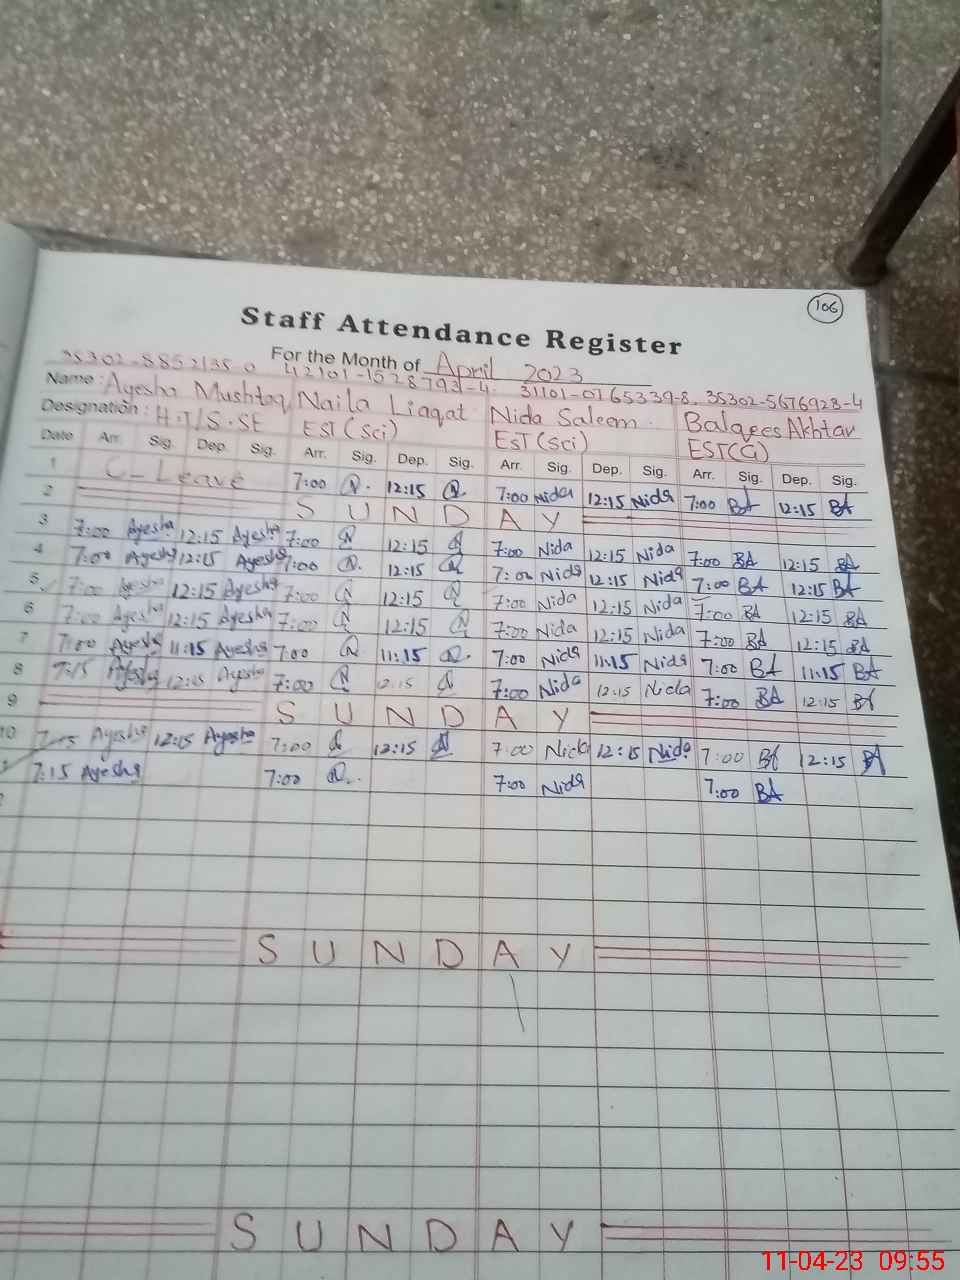 106
Staff Attendance Register
For the Month of April 2023
35302-8852135-0 42101-1528793-4 31101-0765339-8 35302-5676923-4
Name : Ayesha Mushtaq Naila Liaqat Nida Saleem Balqees Akhtar
Designation : H.T/S.SE EST (Sci) EST (Sci) EST(G)
Date Arr. Sig. Dep. Sig. Arr. Sig. Dep. Sig. Arr. Sig. Dep. Sig. Arr. Sig. Dep. Sig.
1 C-Leave 7:00 12:15 7:00 Nida 12:15 Nida 7:00 BA 12:15 BA
2 SUNDAY
3 7:00 Ayesha 12:15 Ayesha 7:00 12:15 7:00 Nida 12:15 Nida 7:00 BA 12:15 BA
4 7:00 Ayesha 12:15 Ayesha 7:00 12:15 7:00 Nida 12:15 Nida 7:00 BA 12:15 BA
5 7:00 Ayesha 12:15 Ayesha 7:00 12:15 7:00 Nida 12:15 Nida 7:00 BA 12:15 BA
6 7:00 Ayesha 12:15 Ayesha 7:00 12:15 7:00 Nida 12:15 Nida 7:00 BA 12:15 BA
7 7:00 Ayesha 11:15 Ayesha 7:00 11:15 7:00 Nida 11:15 Nida 7:00 BA 11:15 BA
8 7:15 Ayesha 12:15 Ayesha 7:00 12:15 7:00 Nida 12:15 Nida 7:00 BA 12:15 BA
9 SUNDAY
10 7:15 Ayesha 12:15 Ayesha 7:00 12:15 7:00 Nida 12:15 Nida 7:00 BA 12:15 BA
7:15 Ayesha 7:00 7:00 Nida 7:00 BA
SUNDAY
SUNDAY
11-04-23 09:55